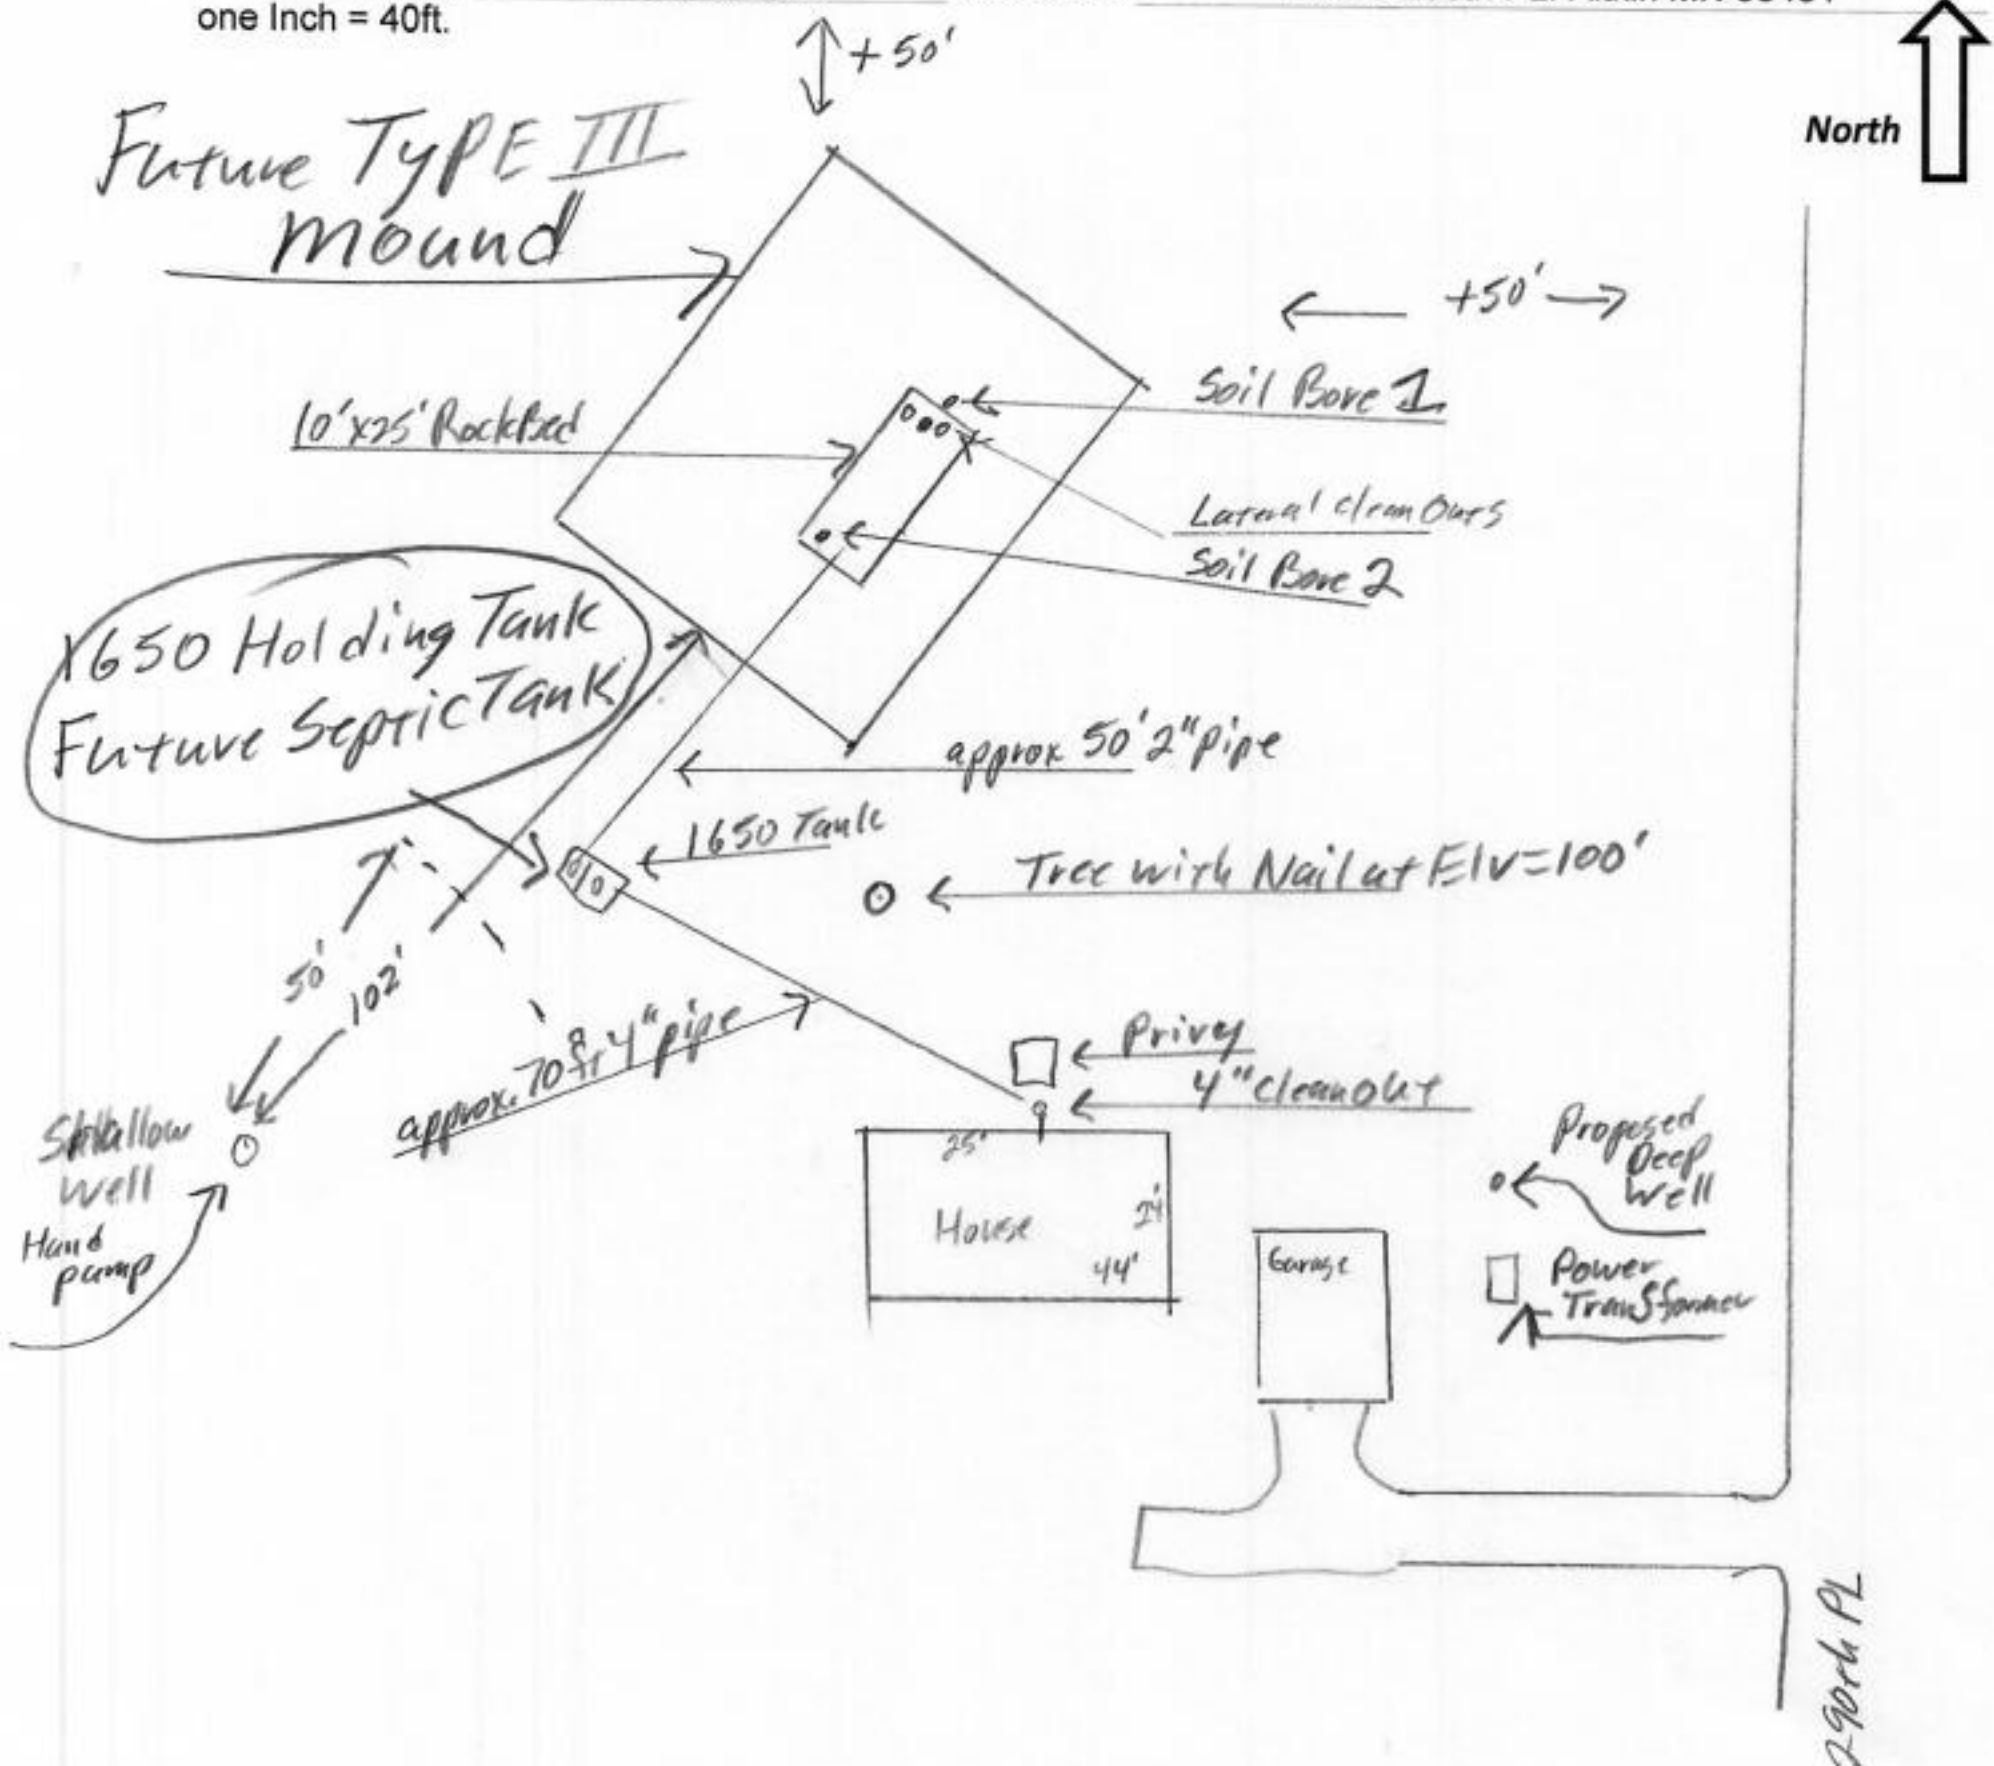 one Inch = 40ft.
+50'
North
Future TYPE III
Mound
+50'
Soil Bore 1
10'x25' RockBed
Lateral Clean Outs
Soil Bore 2
1650 Holding Tank
Future Septic Tank
approx 50' 2" pipe
1650 Tank
Tree with Nail at Elv=100'
50'
102'
approx. 70 ft 4" pipe
Privy
4" Cleanout
Shallow
Well
Hand
pump
25'
House
24'
44'
Garage
Proposed
Deep
Well
Power
Transformer
290th PL